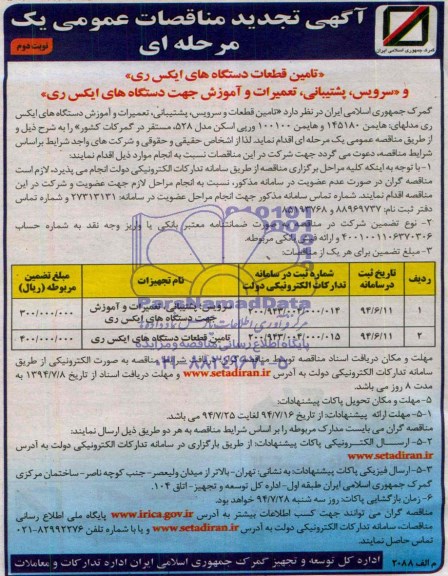 آگهی تجدید مناقصات عمومی یک
مرحله ای
نوبت دوم
گمرک جمهوری اسلامی ایران
«تامین قطعات دستگاه های ایکس ری»
و «سرویس، پشتیبانی، تعمیرات و آموزش جهت دستگاه های ایکس ری»
گمرک جمهوری اسلامی ایران در نظر دارد «تامین قطعات و سرویس، پشتیبانی، تعمیرات و آموزش دستگاه های ایکس
ری مدلهای: هایمن ۱۴۵۱۸۰ و هایمن ۱۰۰۱۰۰ و رپی اسکن مدل ۵۲۸، مستقر در گمرکات کشور» را به شرح ذیل و
از طریق مناقصه عمومی یک مرحله ای اقدام نماید. لذا از اشخاص حقیقی و حقوقی و شرکت های واجد شرایط براساس
شرایط مناقصه، دعوت می گردد جهت شرکت در این مناقصات نسبت به انجام موارد ذیل اقدام نمایند:
۱- با توجه به اینکه کلیه مراحل برگزاری مناقصه از طریق سامانه تدارکات الکترونیکی دولت انجام می پذیرد، لازم است
مناقصه گران در صورت عدم عضویت در سامانه مذکور، نسبت به انجام مراحل لازم جهت عضویت و شرکت در این
مناقصه اقدام نمایند. شماره تماس سامانه مذکور جهت انجام مراحل عضویت در سامانه: ۲۷۳۱۳۱۳۱ و شماره تماس
دفتر ثبت نام: ۸۸۹۶۹۷۳۷ و ۸۵۱۹۳۷۶۸
۲- نوع تضمین شرکت در مناقصه به صورت ضمانتنامه معتبر بانکی یا واریز وجه نقد به شماره حساب
۴۰۰۱۰۰۱۱۰۶۳۷۰۳۰۶ و ارائه فیش بانکی مربوطه.
۳- مبلغ تضمین برای هر یک از مناقصات:
ردیف تاریخ ثبت در سامانه شماره ثبت در سامانه تدارکات الکترونیکی دولت نام تجهیزات مبلغ تضمین مربوطه (ریال)
۱ ۹۴/۶/۱۱ ۰۰۰/۰۱۴ سرویس، پشتیبانی، تعمیرات و آموزش جهت دستگاه های ایکس ری ۳۰۰/۰۰۰/۰۰۰
۲ ۹۴/۶/۱۱ ۰۰۰/۰۱۵ تامین قطعات دستگاه های ایکس ری ۴۰۰/۰۰۰/۰۰۰
ParsNamadData
پایگاه اطلاع رسانی مناقصه و مزایده
۰۲۱-۸۸۳۴۹۶۷۰-۵
مهلت و مکان دریافت اسناد مناقصه توسط مناقصه گران
سامانه تدارکات الکترونیکی دولت به آدرس www.setadiran.ir و مهلت دریافت اسناد از تاریخ ۱۳۹۴/۷/۸ به
مدت ۸ روز می باشد.
۵- مهلت و مکان تحویل پاکات پیشنهادات:
۵-۱- مهلت ارائه پیشنهادات: از تاریخ ۹۴/۷/۱۶ لغایت ۹۴/۷/۲۵ می باشد.
مناقصه گران می بایست مدارک مربوطه را بر اساس شرایط مناقصه به هر دو طریق ذیل ارسال نمایند:
۵-۲- ارسال الکترونیکی پاکات پیشنهادات: از طریق بارگزاری در سامانه تدارکات الکترونیکی دولت به آدرس
www.setadiran.ir
۵-۳- ارسال فیزیکی پاکات پیشنهادات: به نشانی: تهران-بالاتر از میدان ولیعصر- جنب کوچه ناصر-ساختمان مرکزی
گمرک جمهوری اسلامی ایران طبقه اول-اداره کل توسعه و تجهیز-اتاق ۱۰۴.
۶- زمان بازگشایی پاکات: روز سه شنبه ۹۴/۷/۲۸ خواهد بود.
مناقصه گران می توانند جهت کسب اطلاعات بیشتر به آدرس www.irica.gov.ir پایگاه ملی اطلاع رسانی
مناقصات، سامانه تدارکات الکترونیکی دولت به آدرس www.setadiran.ir و یا با شماره تلفن ۸۲۹۹۲۲۷۶-۰۲۱
تماس حاصل نمایند.
م الف ۲۰۸۸
اداره کل توسعه و تجهیز گمرک جمهوری اسلامی ایران اداره تدارکات و معاملات